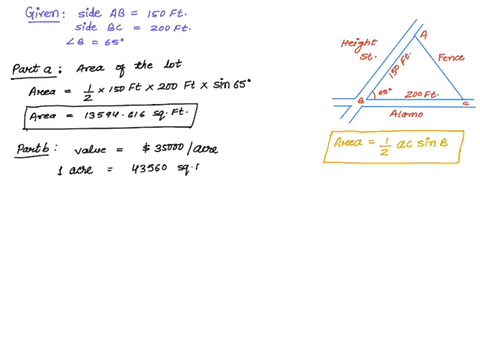 Given: side AB = 150 Ft.
side BC = 200 Ft.
∠B = 65°
Part a: Area of the lot
Area = 1/2 × 150 Ft × 200 Ft × sin 65°
Area = 13594.616 sq. Ft.
Part b: value = $ 35000 /acre
1 acre = 43560 sq.
A
Height
St.
150 Ft.
Fence
65°
200 Ft.
B
C
Alamo
Area = 1/2 ac sin B